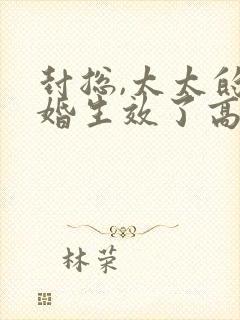 封总,太太的
婚生效了高
林荣